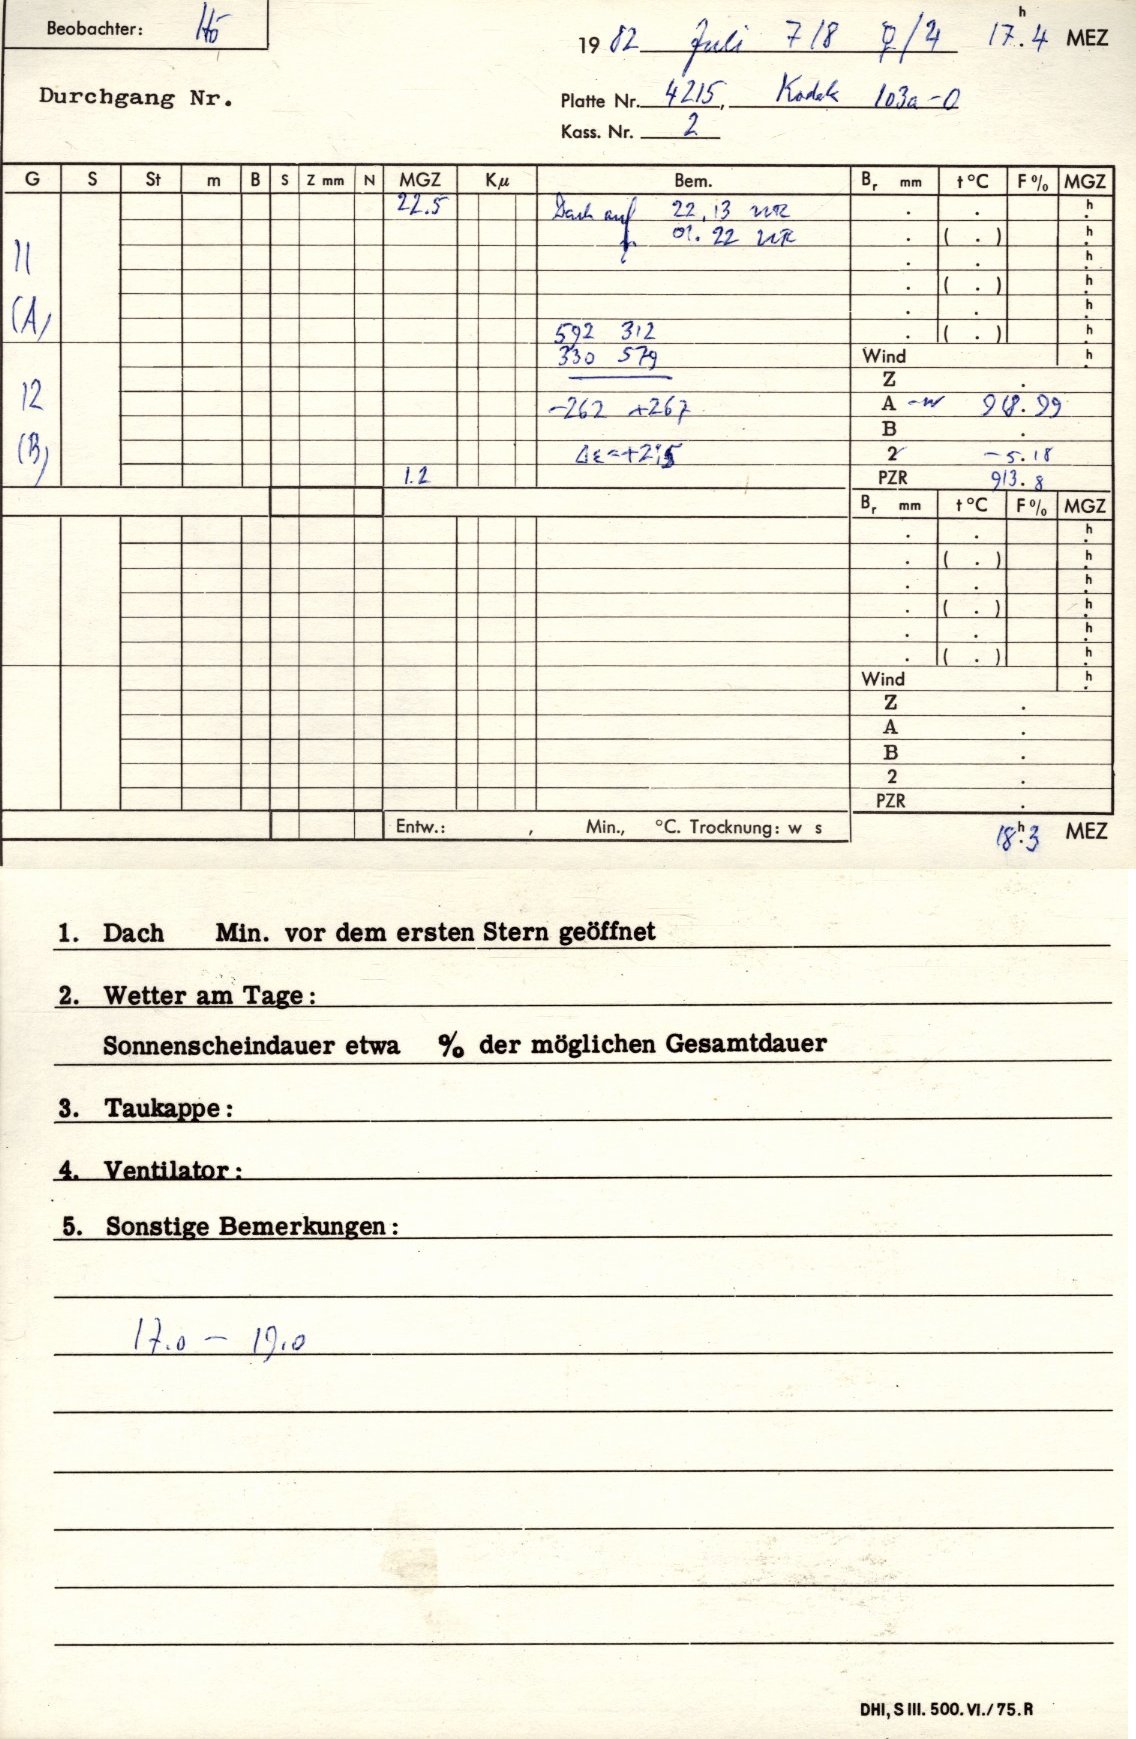 Beobachter: Hö
19 82 Juli 7/8 ☿/♃ 17.4 h MEZ
Durchgang Nr.
Platte Nr. 4215, Kodak 103a-O
Kass. Nr. 2
G S St m B S Z mm N MGZ Kμ Bem. Br mm t °C F % MGZ
22.5 Dach auf 22.13 . . h
01.22 . ( . ) h
11 . . h
. ( . ) h
(A) . . h
592 312 . ( . ) h
330 579 Wind h
Z .
12 -262 +267 A 918.99
B .
(B) Δε=+2.5 2 -5.18
1.2 PZR 913.8
Br mm t °C F % MGZ
. . h
. ( . ) h
. . h
. ( . ) h
. . h
. ( . ) h
Wind h
Z .
A .
B .
2 .
PZR .
Entw.: , Min., °C. Trocknung: w s
18.3 h MEZ
1. Dach Min. vor dem ersten Stern geöffnet
2. Wetter am Tage:
Sonnenscheindauer etwa % der möglichen Gesamtdauer
3. Taukappe:
4. Ventilator:
5. Sonstige Bemerkungen:
17.0 – 19.0
DHI, S III. 500. VI./75. R